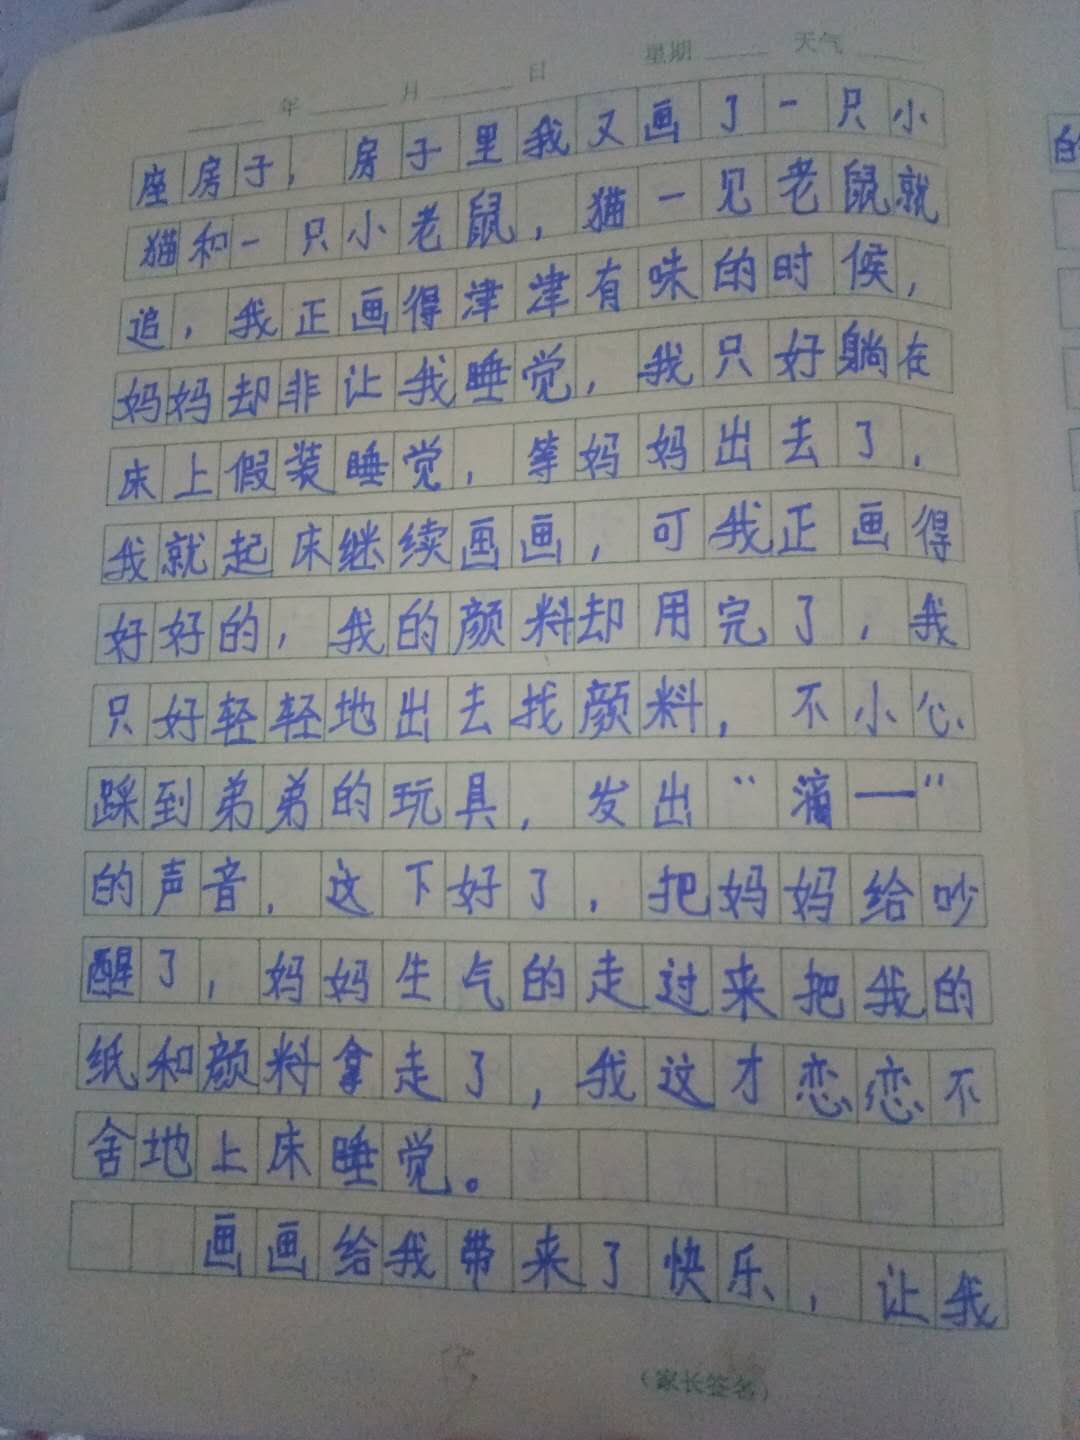 年 月 日 星期 天气
座房子，房子里我又画了一只小
猫和一只小老鼠，猫一见老鼠就
追，我正画得津津有味的时候，
妈妈却非让我睡觉，我只好躺在
床上假装睡觉，等妈妈出去了，
我就起床继续画画，可我正画得
好好的，我的颜料却用完了，我
只好轻轻地出去找颜料，不小心
踩到弟弟的玩具，发出“滴——”
的声音，这下好了，把妈妈给吵
醒了，妈妈生气的走过来把我的
纸和颜料拿走了，我这才恋恋不
舍地上床睡觉。
画画给我带来了快乐，让我
（家长签名）
的